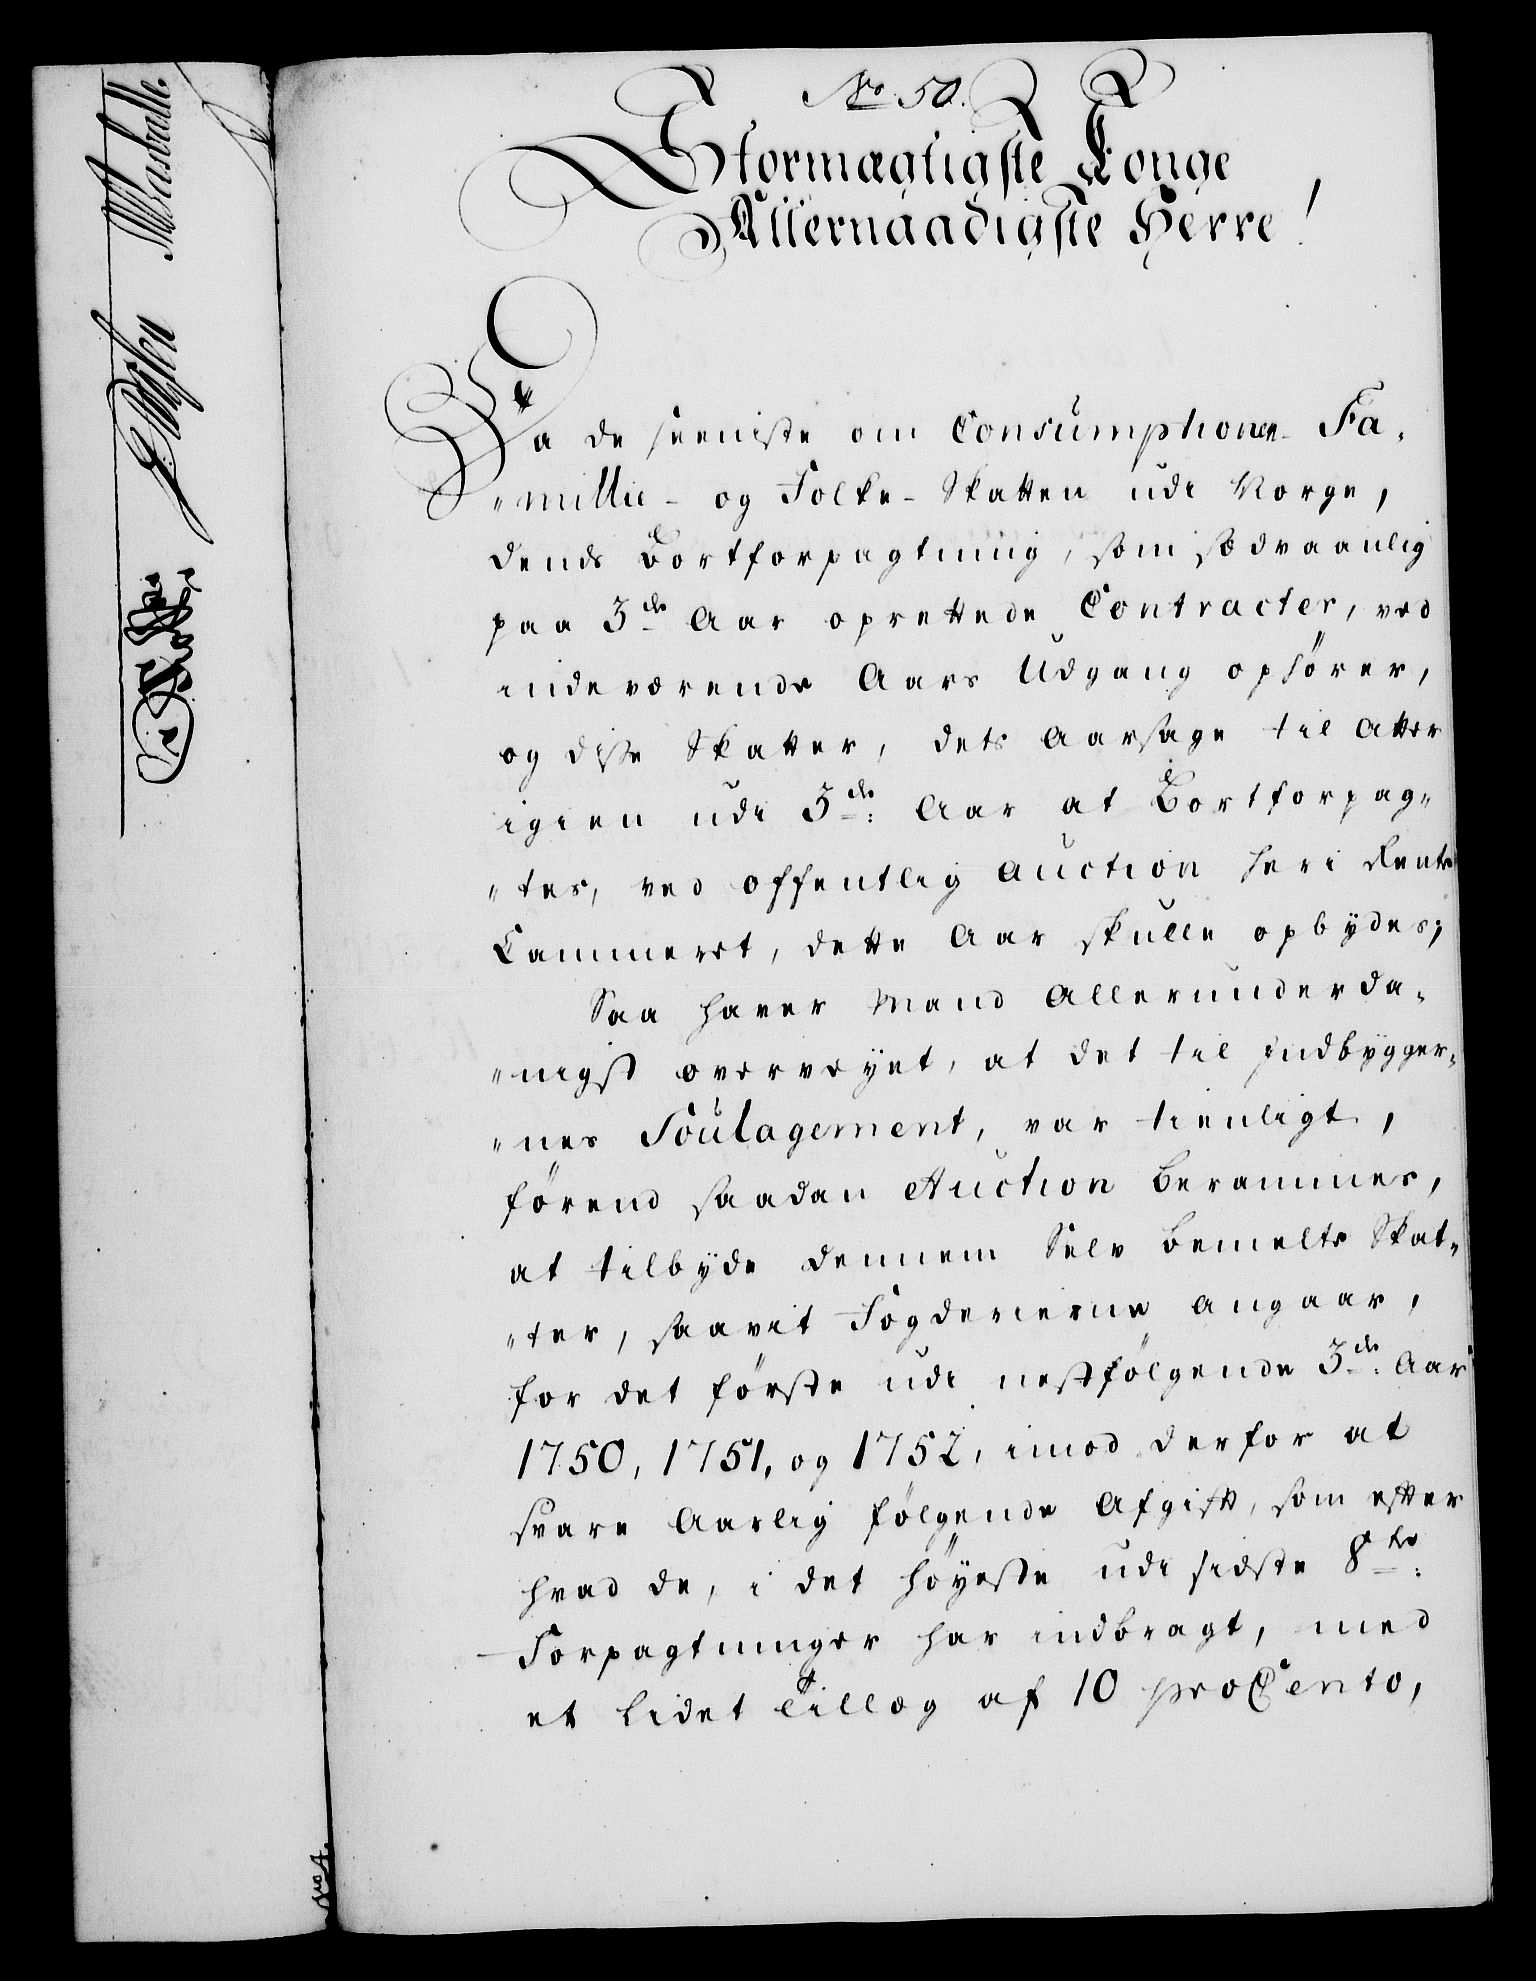 No. 50.
Stormægtigste Konge
Allernaadigste Herre!
Da de seeniste om Consumptionen- Fa-
"millie- og Folke-Skatten udi Norge,
dends Bortforpagtning, som sædvaanlig
paa 3de Aar oprettede Contracter, ved
indeværende Aars Udgang ophörer,
og disse Skatter, dets Aarsage til atter
igien udi 3de: Aar at Bortforpag-
"tes, ved offentlig Auction her i Rente
Cammeret, dette Aar skulle opbydes;
Saa haver Mand Allerunderda-
"nigst overveyet, at det til Indbygger-
"nes Soulagement, var tienligt,
förend saadan Auction berammes,
at tilbyde dennem Selv bemelte Skat-
"ter, saavit Fogderierne angaar,
for det förste udi nestfölgende 3de: Aar
1750, 1751, og 1752, imod derfor at
svare Aarlig fölgende Afgift, som efter
hvad de, i det höyeste udi sidste 8te:
Forpagtninger har indbragt, med
et lidet Tillæg af 10 pro Cento,